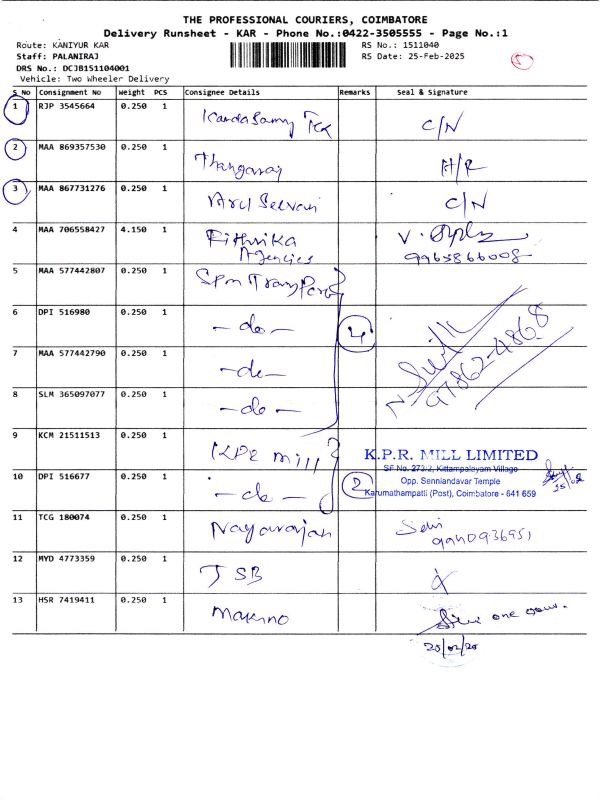 THE PROFESSIONAL COURIERS, COIMBATORE
Delivery Runsheet - KAR - Phone No.:0422-3505555 - Page No.:1
Route: KANIYUR KAR RS No.: 1511040
Staff: PALANIRAJ RS Date: 25-Feb-2025
DRS No.: DCJB151104001
Vehicle: Two Wheeler Delivery
5
S No Consignment No Weight PCS Consignee Details Remarks Seal & Signature
1 RJP 3545664 0.250 1 C/N
2 MAA 869357530 0.250 1 Thangaraj H/R
3 MAA 867731276 0.250 1 Arul Selvan C/N
4 MAA 706558427 4.150 1 Rithvika
Agencies
9963866008
5 MAA 577442807 0.250 1 Spm Transport
6 DPI 516980 0.250 1 - do - 4
7 MAA 577442790 0.250 1 - do - 97862-4868
8 SLM 365097077 0.250 1 - do -
9 KCM 21511513 0.250 1 KPR mill
K.P.R. MILL LIMITED
SF No. 273/2, Kittampalayam Village
10 DPI 516677 0.250 1 - do - 2
Opp. Senniandavar Temple
Karumathampatti (Post), Coimbatore - 641 659
11 TCG 180074 0.250 1 Nagarajan Selvi
9940936951
12 MYD 4773359 0.250 1 J SB
13 HSR 7419411 0.250 1 Makino
25/02/25